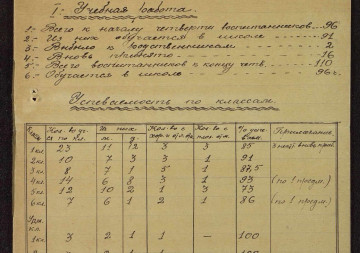 I - Учебная работа.
1.- Всего к началу четверти воспитанников.. 96
2.- Из них обучается в школе - 91
3.- Выбыло к родственникам - 2
4.- Вновь принято - 16
5.- Всего воспитанников к концу четв. 110
6.- Обучается в школе - 96ч.
Успеваемость по классам.
Классы Кол-во уч-ся по кл. Из них. Кол-во с Кол-во с Примечание
м д
1кл. 23 11 12 3 3 95
2кл. 10 7 3 3 1 91
3кл. 8 7 1 5 1 87,5
4кл. 14 6 8 3 1 93 (по 1 предм.)
5кл. 12 10 2 1 3 73
6кл. 7 6 1 2 1 86 (по 1 предм.)
1кл. 3 2 1 - - 100